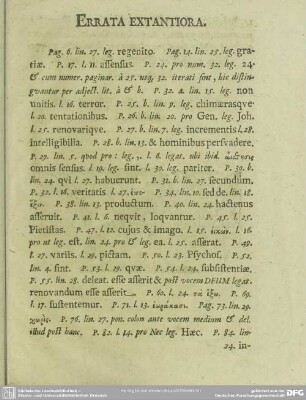 ERRATA EXTANTIORA.
Pag. 6. lin. 27. leg. regenito. Pag. 14. lin. 25. leg. gra-
tiæ. P. 17. l. 11. aſſenſus. P. 24. pro num. 32. leg. 24-
& cum numer. paginar. à 25. usq, 32. iterati ſint, hic diſtin-
gvantur per adject. lit. à & b. P. 32. a. lin. 15. leg. non
unitis. l. 16. terror. P. 25. b. lin. 9. leg. chimærasqve
l. 20. tentationibus. P. 26. b. lin. 20. pro Gen. leg. Joh.
l. 25. renovarique. P. 27. b. lin. 7. leg. incrementis l. 28.
Intelligibilia. P. 28. b. lin. 13. & hominibus perſvadere.
P. 29. lin. 5. quod pro: leg. ,, l. 6. legat. ubi ibid.
omnis ſenſus. l. 19. leg. ſint. l. 30. leg. pariter. P. 30. b.
lin. 24. qvi l. 27. habuerunt. P. 31. b. lin. 27. ſecundùm.
P. 32. l. 16. veritatis l. 27. P. 34. lin. 10. ſed de. lin. 18.
ἔξω. P. 38. lin. 13. productum. P. 40. lin. 24. hactenus
aſſeruit. P. 41. l. 6. neqvit, loqvantur. P. 45. l. 25.
Pietiſtas. P. 47. l. 10. cujus & imago. l. 15. l. 16.
pro ut leg. eſt. lin. 24. pro & leg. ea. l. 25. aſſerat. P. 49.
l. 27. variis. l. 29. pictam. P. 50. l. 23. Pſychoſ. P. 52.
lin. 4. ſint. P. 53. l. 19. qvæ. P. 54. l. 24. ſubſiſtentiæ,
P. 55. lin. 28. deleat. eſſe aſſerit & poſt vocem DEUM legat.
renovandum eſſe aſſerit. P. 60. l. 24. τὰ ἔξω. P. 69.
l. 17. ſuſtentemur. P. 71. l. 13. Pag. 73. lin. 29.
χωρὶς. P. 76. lin. 27. pon. colon ante vocem medium & del.
illud poſt hanc, P. 82. l. 14. pro Nec leg. Hæc. P. 84. lin-
24. in-